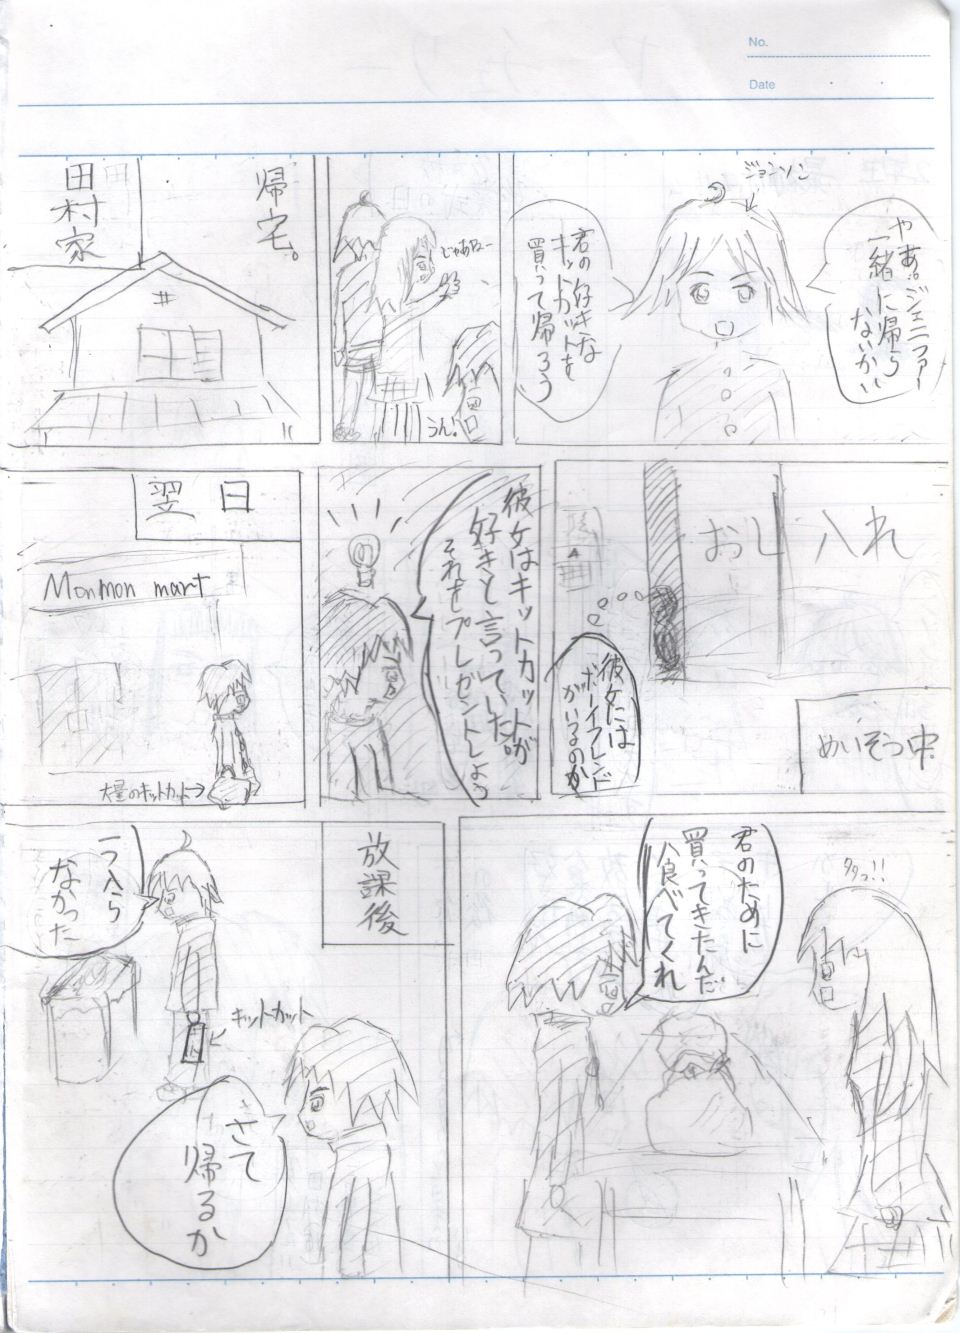 No.
Date
ジョンソン
やあ。ジェニファー
一緒に帰ら
ないかい
君の好きな
キットカットを
買って帰ろう
じゃあねー
うん!
帰宅。
田村家
おし入れ
めいそう中
彼女には
ボーイフレンド
がいるのか
彼女はキットカットが
好きと言っていた。
それをプレゼントしよう
翌日
Monmon mart
大量のキットカット→
君のために
買ってきたんだ
食べてくれ
放課後
一つ入ら
なかった
キットカット
さて
帰るか